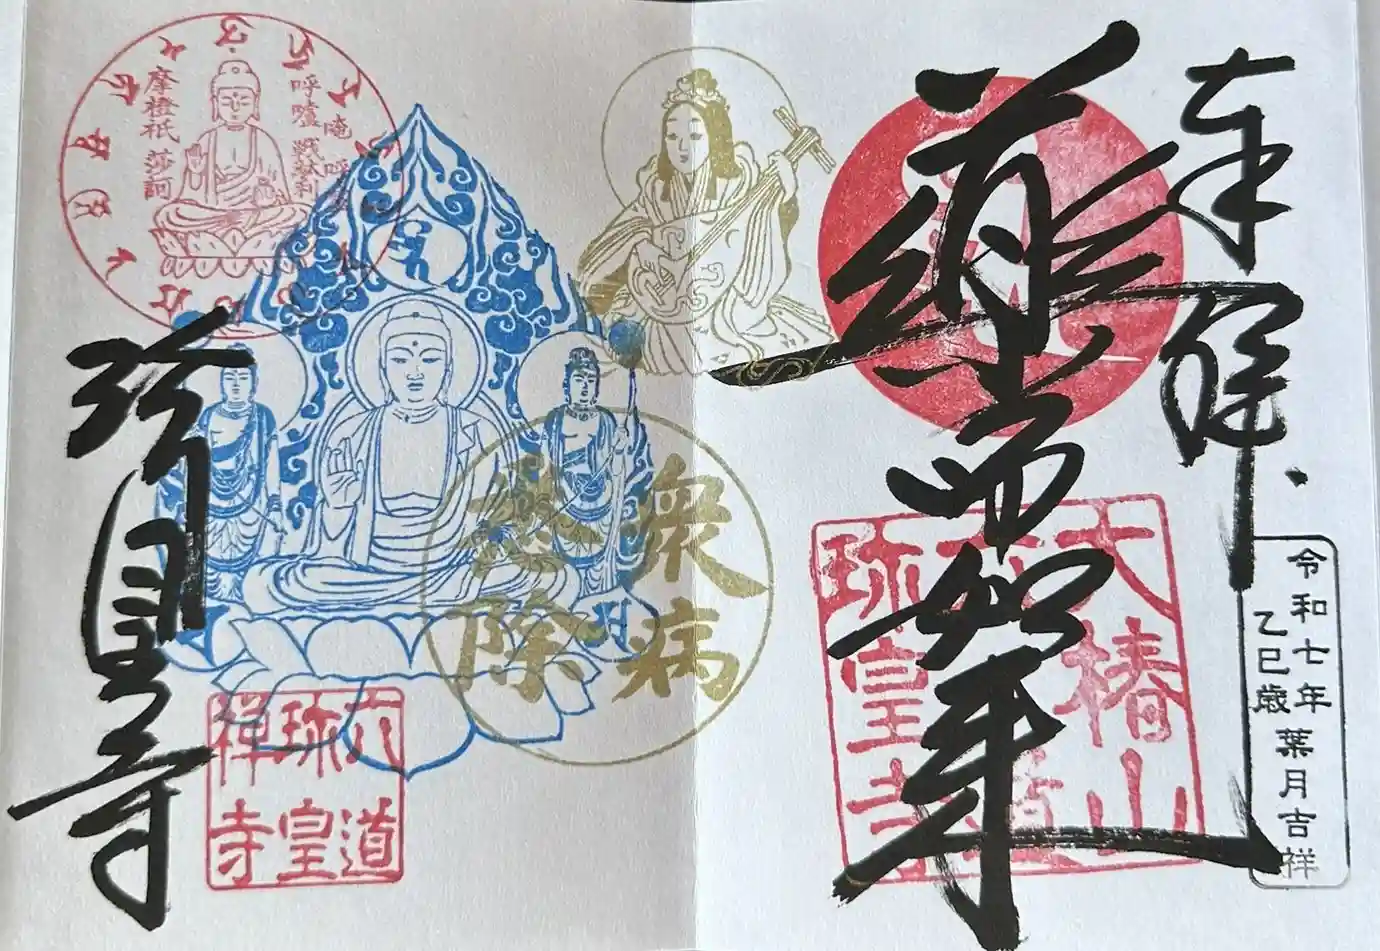 奉拝
薬師如来
大椿山
六道
珎皇寺
令和七年
乙巳歳
葉月吉祥
衆病
悉除
唵 呼
呼嚧 戦駄利
摩橙祇 莎訶
珍皇寺
六道
珎皇
禅寺